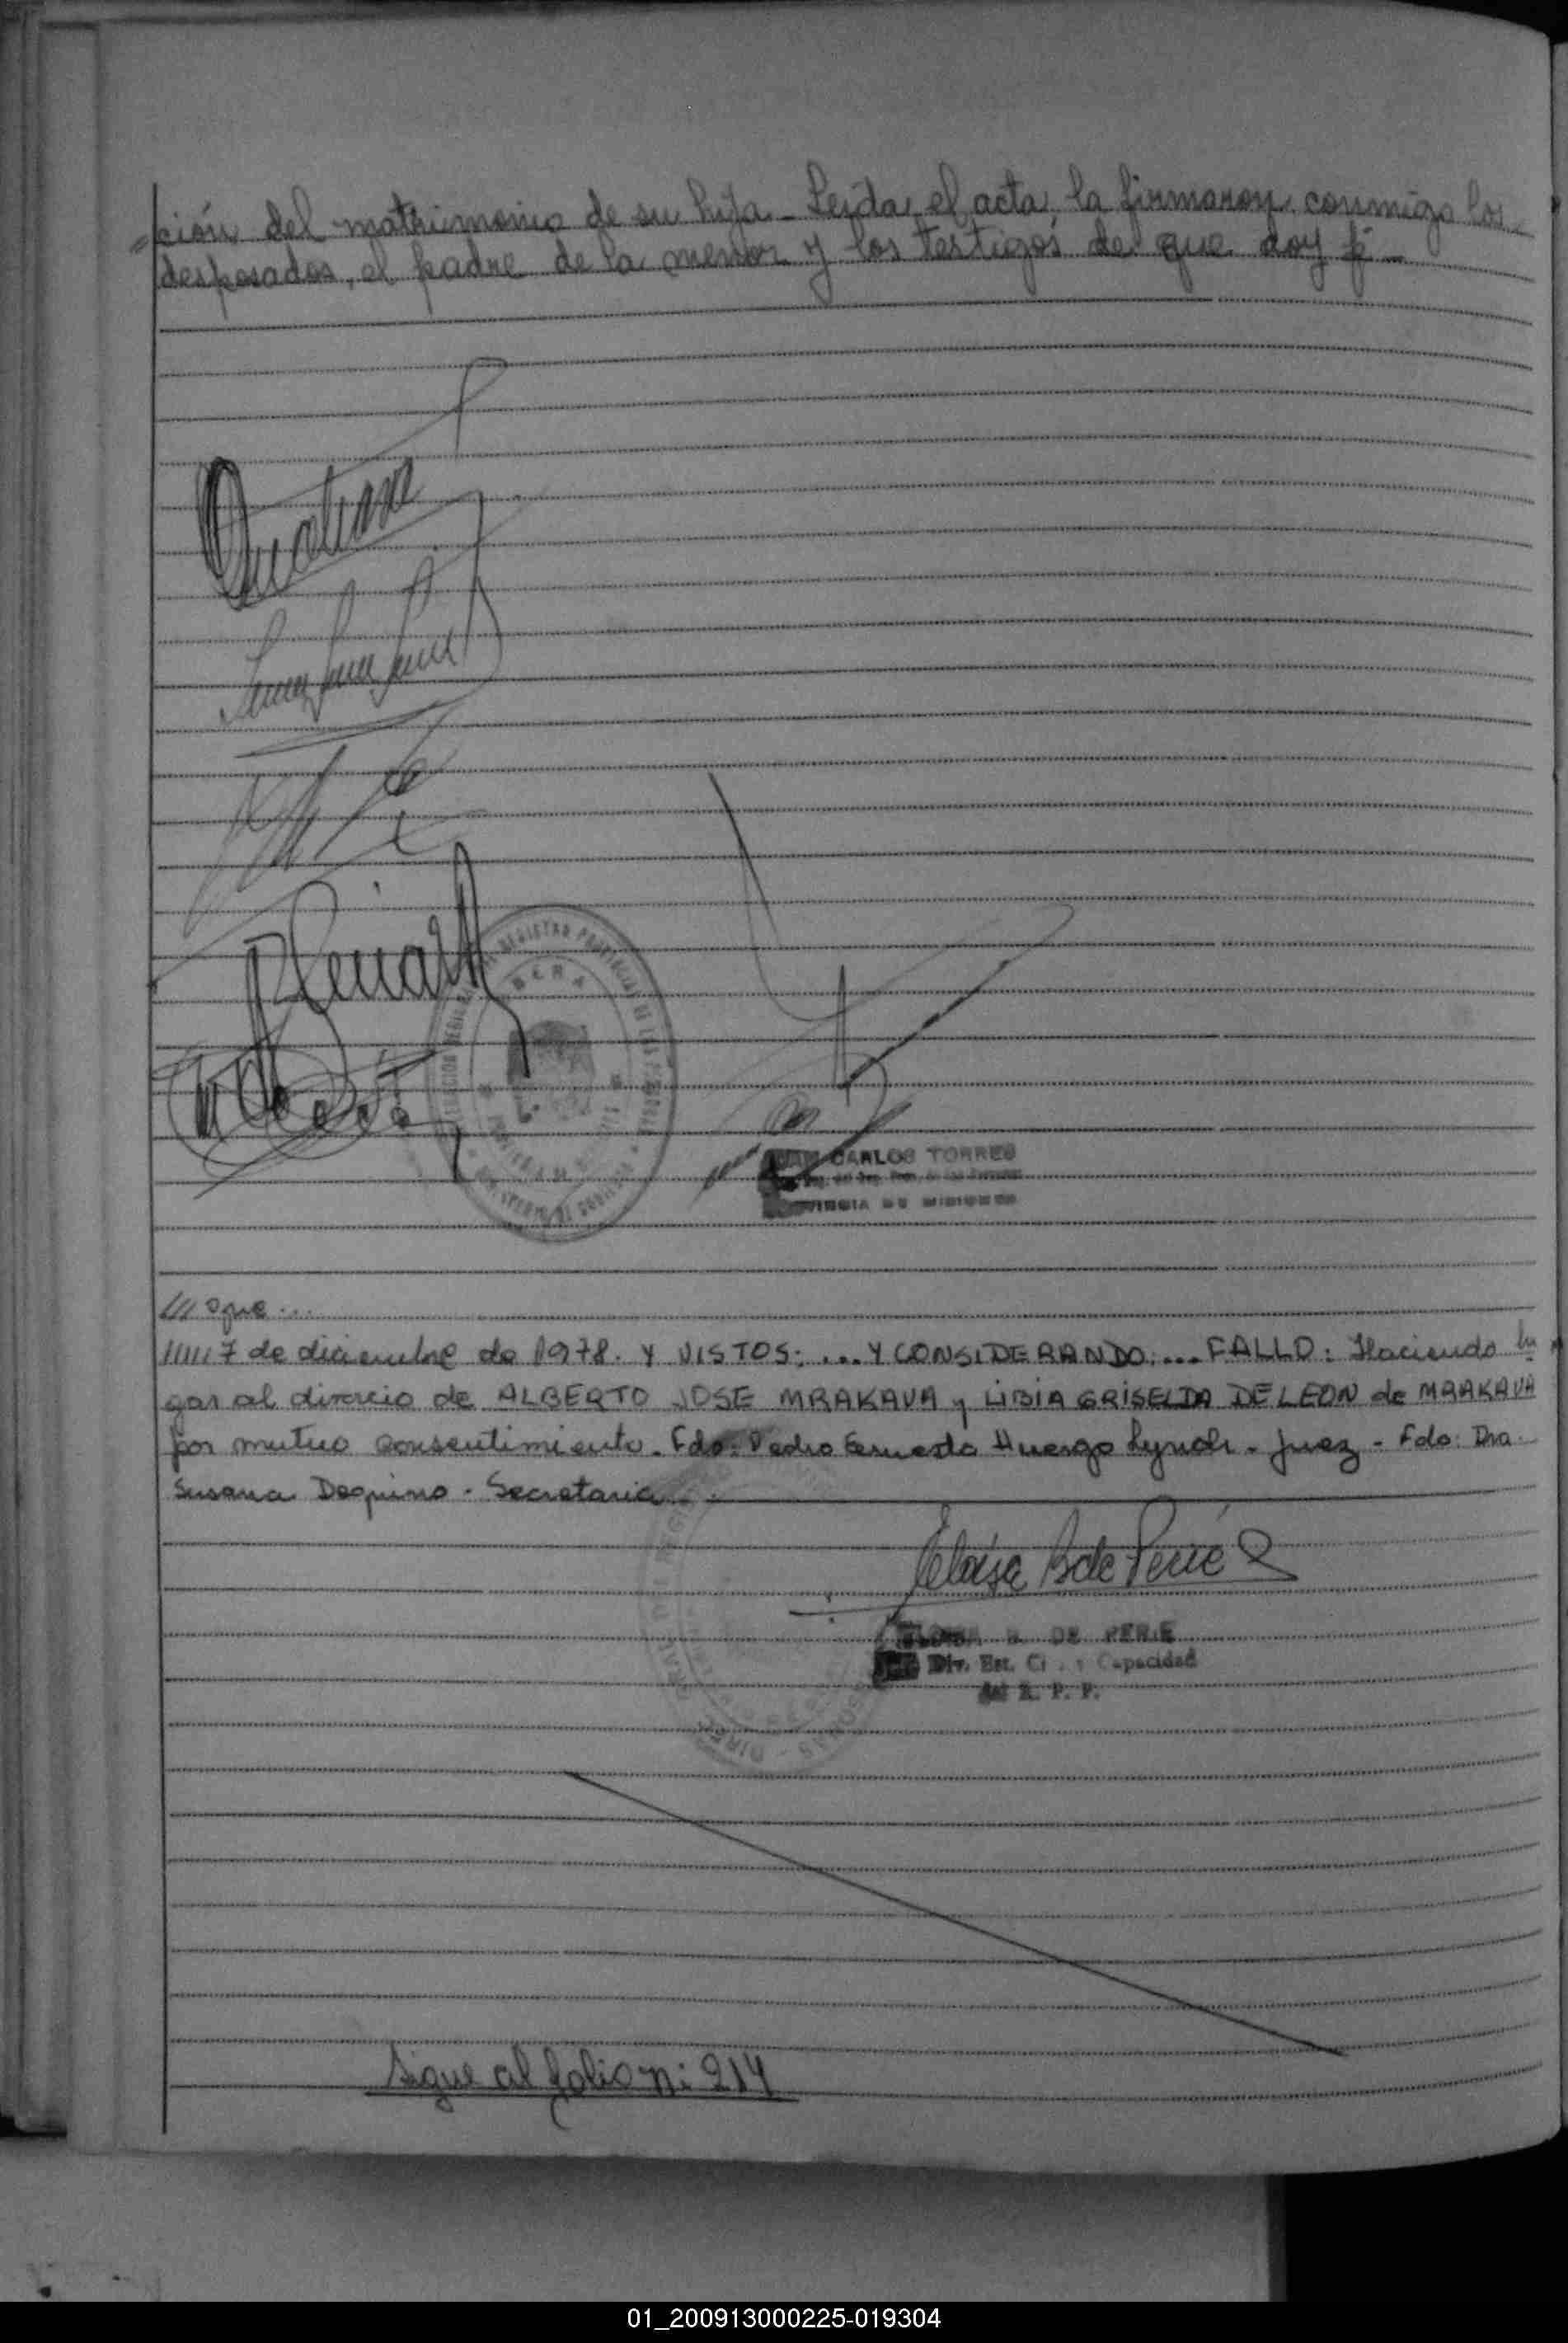 =ción del matrimonio de su hija - Leida el acta, la firmaron conmigo los
desposados, el padre de la menor y los testigos de que doy fé -
JUAN CARLOS TORRES
///que...
///// 7 de diciembre de 1978. Y VISTOS: ... Y CONSIDERANDO: ... FALLO: Haciendo lu
gar al divorcio de ALBERTO JOSE MRAKAVA y LIBIA GRISELDA DE LEON de MRAKAVA
por mutuo consentimiento. Fdo: Pedro Ernesto Huergo Lynch - Juez - Fdo: Dra.
Susana Dequino - Secretaria
Eloisa B de Perié
ELOISA B. DE PERIE
Div. Est. Ci . y Capacidad
del R. P. P.
Sigue al folio n: 214
01_200913000225-019304